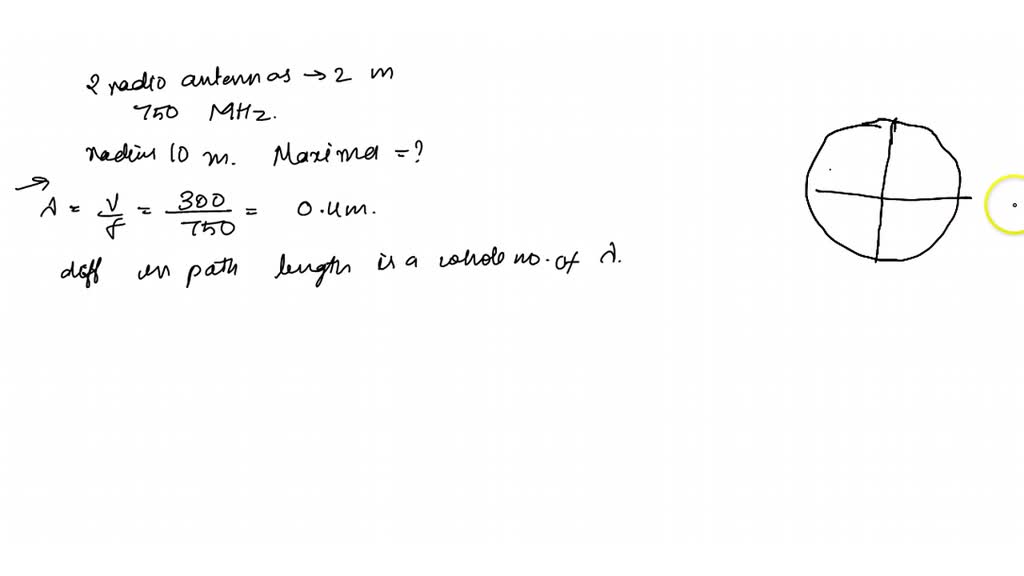 2 radio antennas → 2 m
750 MHz.
radius 10 m. Maxima = ?
→ λ = V/f = 300/750 = 0.4m.
diff in path length is a whole no. of λ.